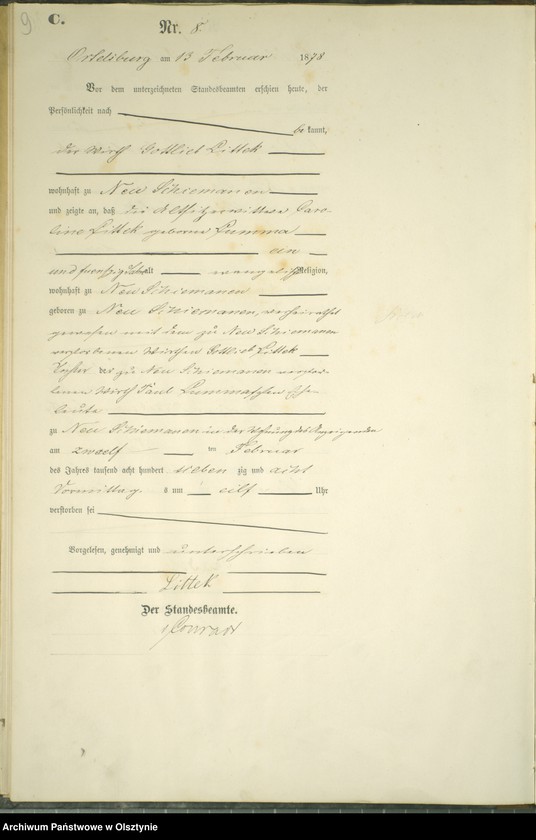 9
C.
Nr. 8
Ortelsburg am 13 Februar 1878
Vor dem unterzeichneten Standesbeamten erschien heute, der
Persönlichkeit nach
be kannt,
der Wirth Gottlieb Littek
wohnhaft zu Neu Schiemanen
und zeigte an, daß die Altsitzerwittwe Caro-
line Littek geborne Pumma
ein
und fuenfzig Jahre alt evangelischer Religion,
wohnhaft zu Neu Schiemanen
geboren zu Neu Schiemanen, verheirathet
gewesen mit dem zu Neu Schiemanen
verstorbenen Wirthen Gottlieb Littek
Tochter der zu Neu Schiemanen verstor-
benen Wirth Paul Pummaschen Ehe-
leute
zu Neu Schiemanen in der Wohnung des Anzeigenden
am zwoelf ten Februar
des Jahres tausend acht hundert sieben zig und acht
Vormittag s um eilf Uhr
verstorben sei
Vorgelesen, genehmigt und unterschrieben
Littek
Der Standesbeamte.
Conrad
Archiwum Państwowe w Olsztynie